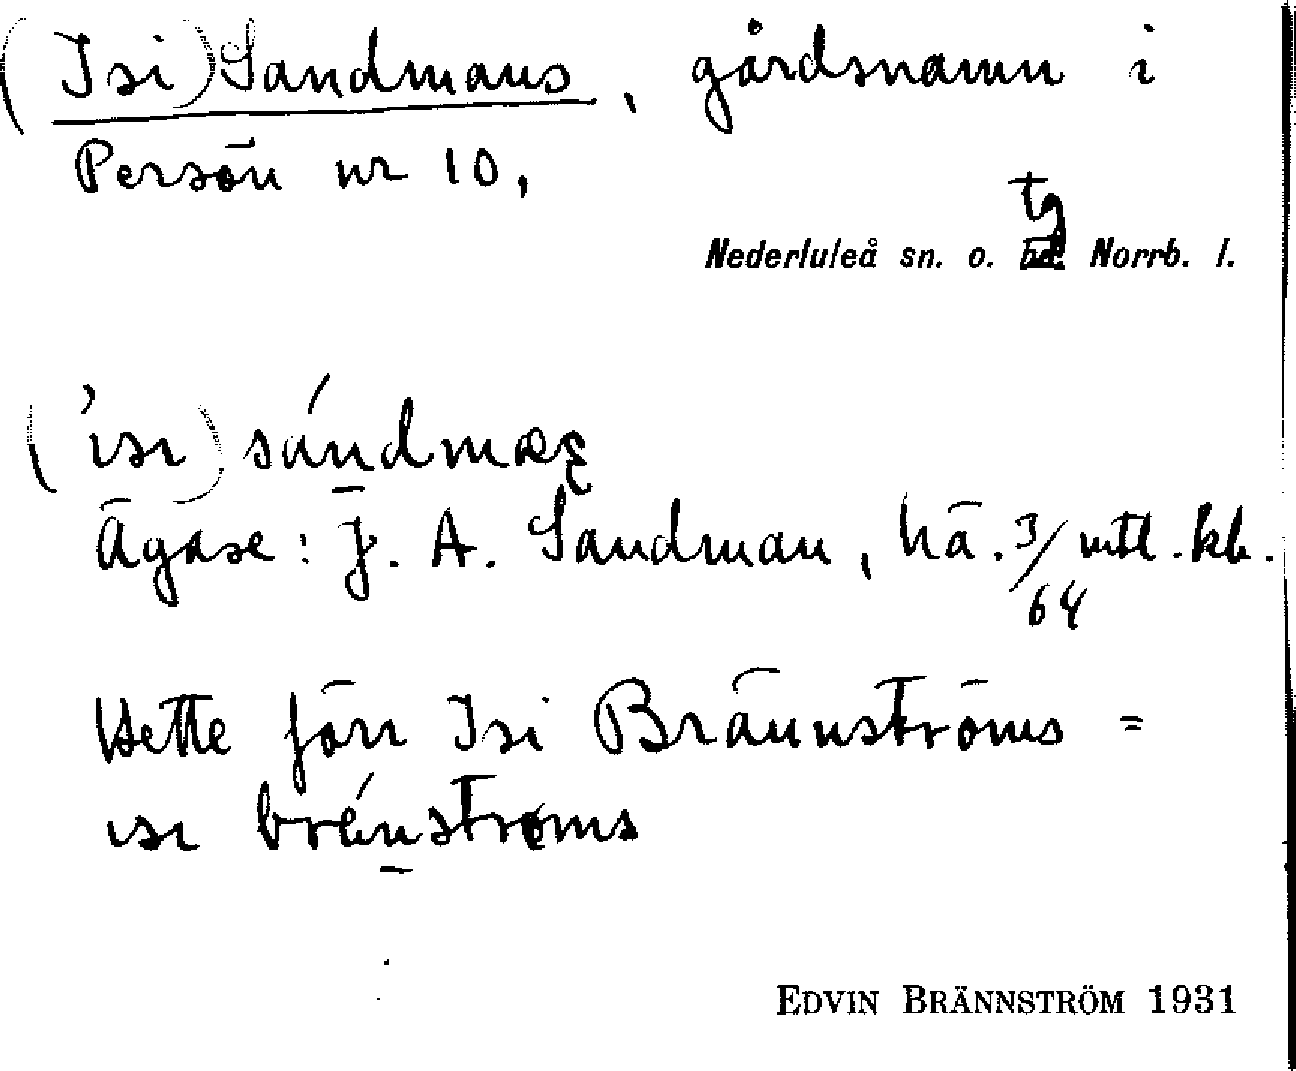 (Isi) Sandmans, gårdsnamn i
Persön nr 10,
tg
Nederluleå sn. o. Norrb. l.
('isi) sándmas
Ägare: J. A. Sandman, hä. 3/64 mtl. kb.
Hette förr Isi Brännströms =
isi brénstroms
EDVIN BRÄNNSTRÖM 1931